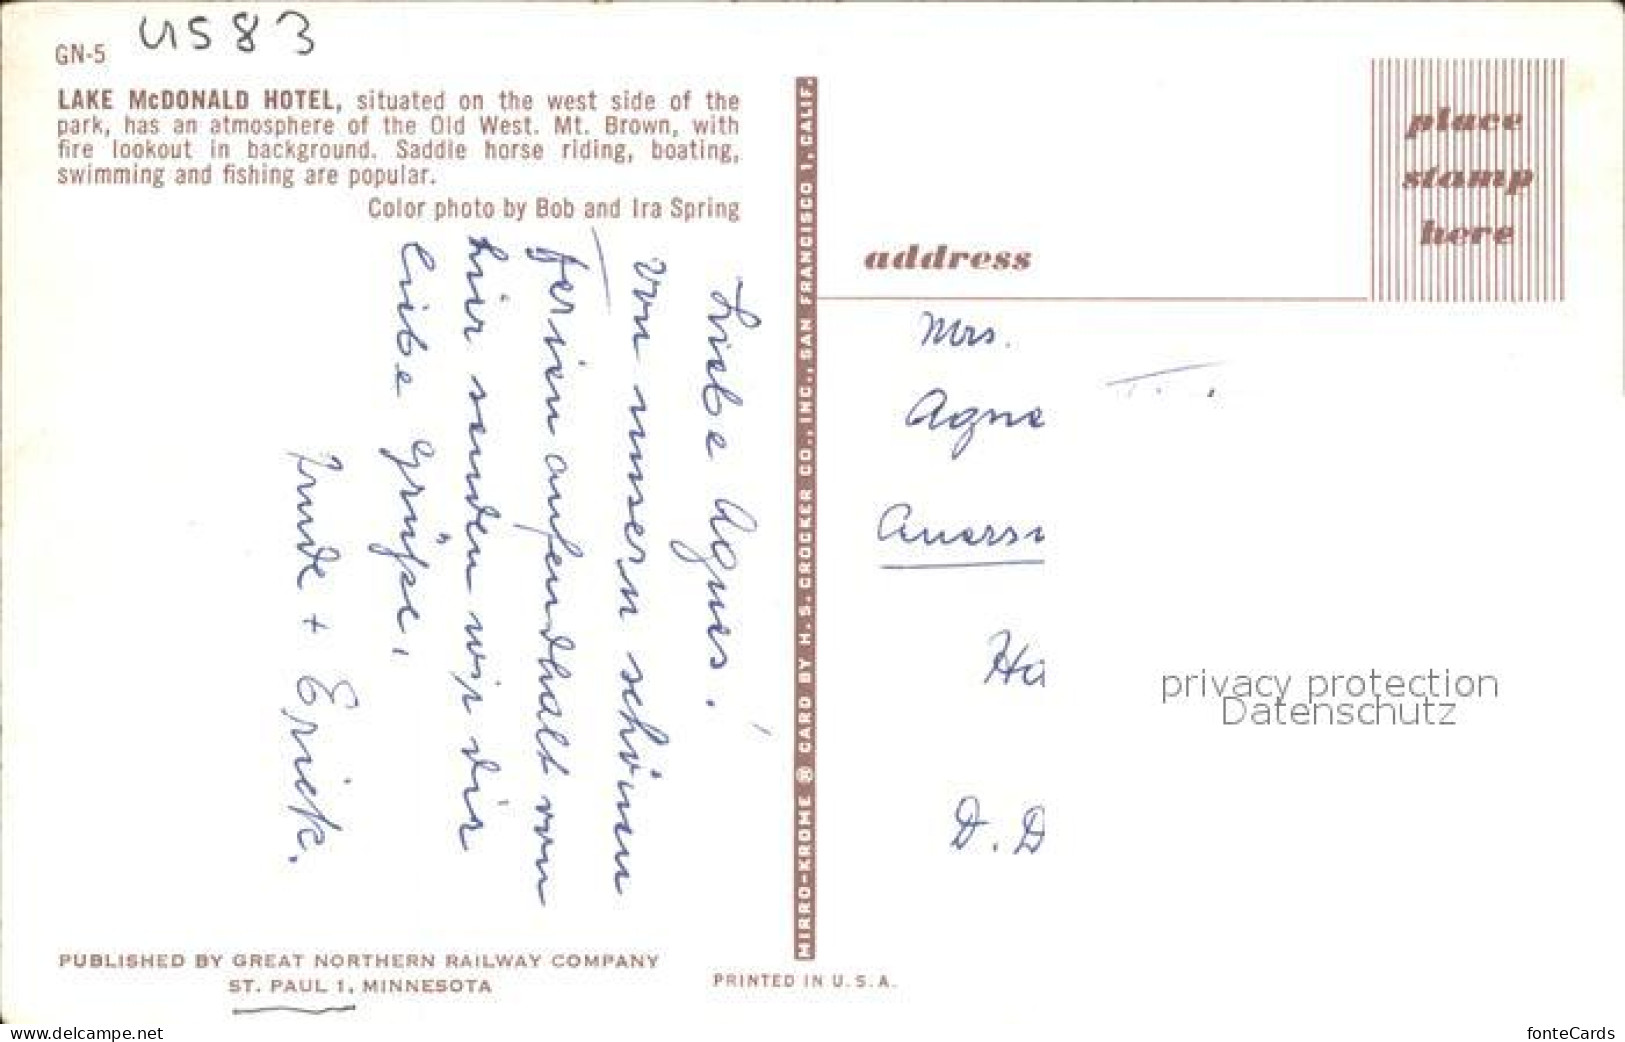 US83
GN-5
LAKE McDONALD HOTEL, situated on the west side of the
park, has an atmosphere of the Old West. Mt. Brown, with
fire lookout in background. Saddle horse riding, boating,
swimming and fishing are popular.
Color photo by Bob and Ira Spring
Liebe Agnes.
von unsern schönen
Ferien aufendhalt von
hir senden wir dir
liebe grüße,
Trude + Erick.
PUBLISHED BY GREAT NORTHERN RAILWAY COMPANY
ST. PAUL 1, MINNESOTA
MIRRO-KROME ® CARD BY H. S. CROCKER CO., INC., SAN FRANCISCO 1, CALIF.
PRINTED IN U.S.A.
place
stamp
here
address
Mrs.
Agne
Ha
D. D
privacy protection
Datenschutz
www.delcampe.net
fonteCards